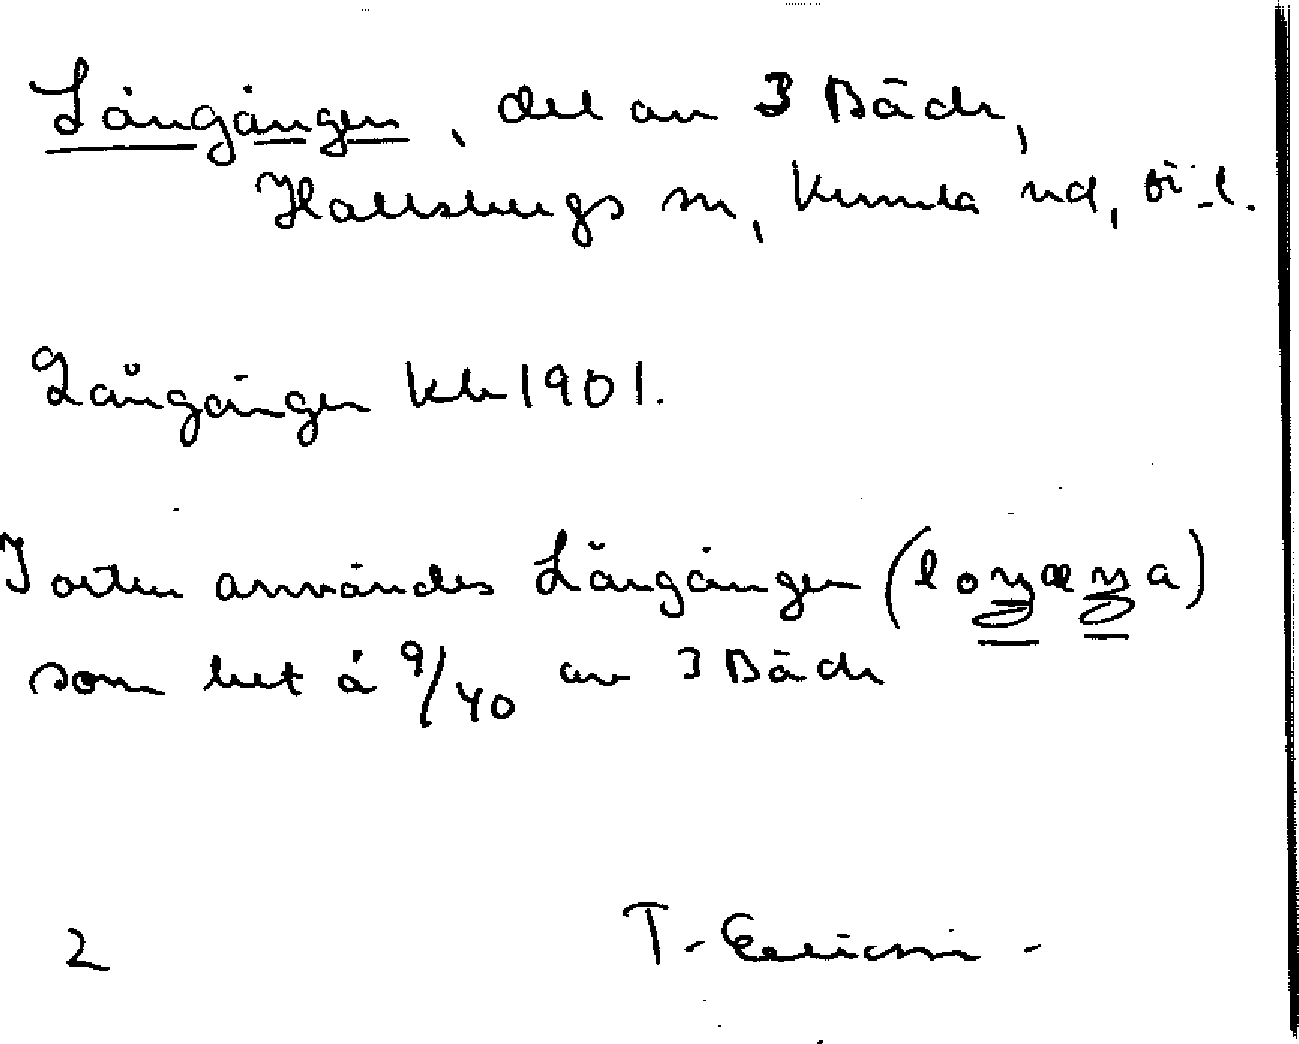 Långängen, del av 3 Bäck,
Hallsbergs sn, Kumla hd, Ö-l.
Långängen kb 1901.
I orten användes Långängen (loŋæŋa)
som bet å 9/40 av 3 Bäck
2 T. Ericsson -